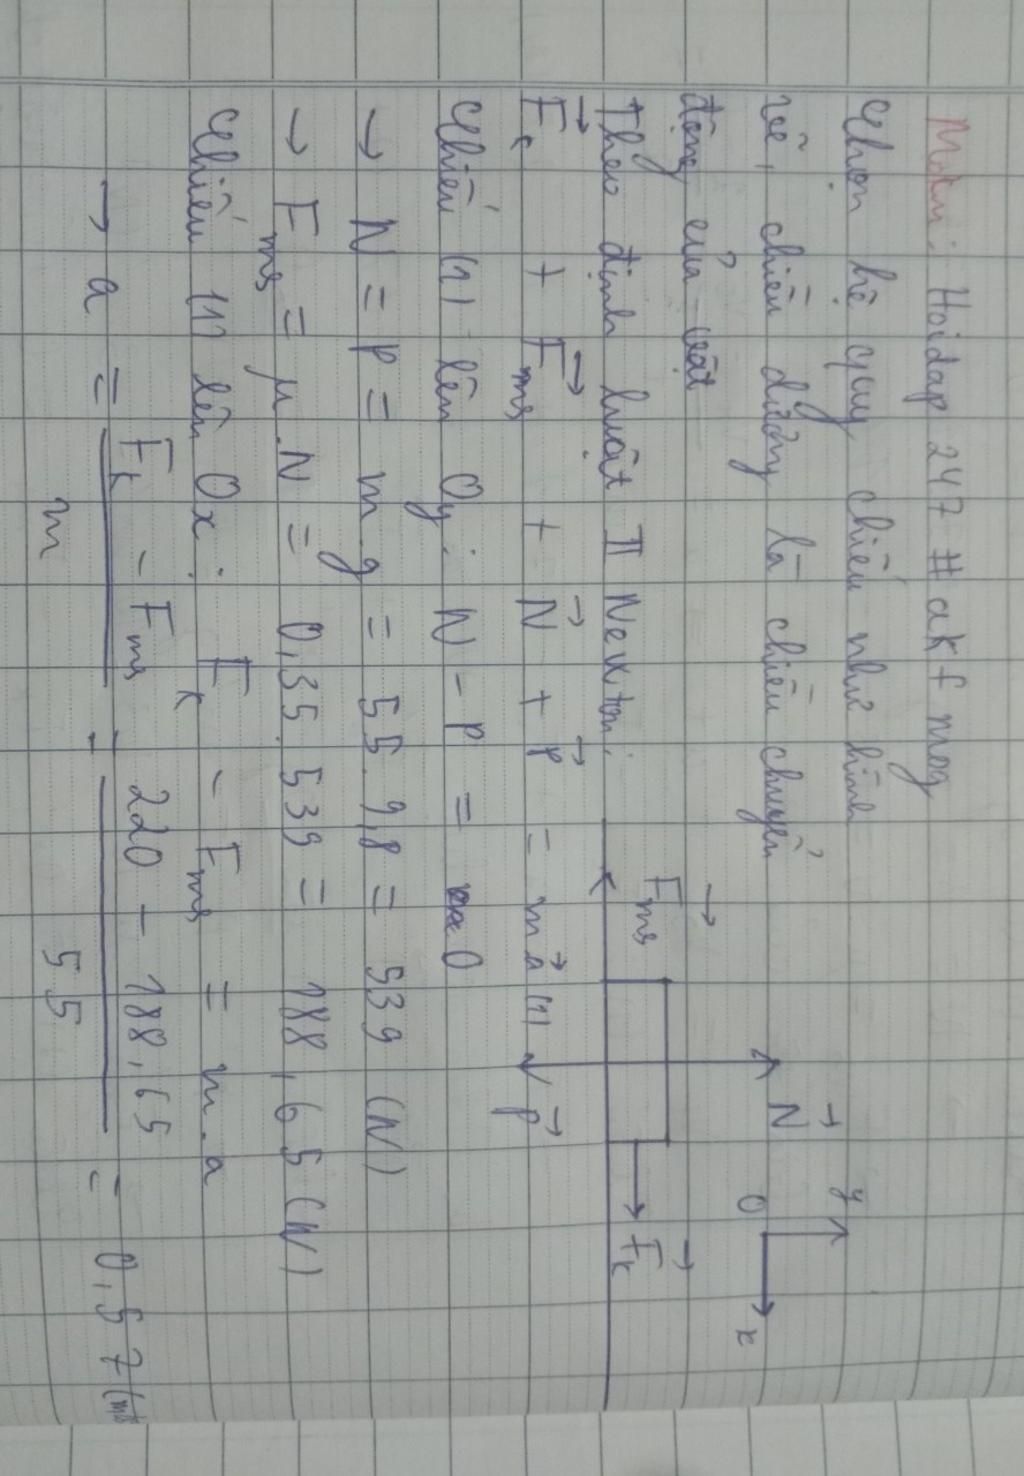 Mdam: Hoidap 247 #akf mog
Chọn hệ quy chiếu như hình
vẽ, chiều dương là chiều chuyển
động của vật
Theo định luật II Newton:
F⃗k + F⃗ms + N⃗ + P⃗ = ma⃗ (1)
F⃗ms
N⃗
P⃗
F⃗k
y
O
x
Chiếu (1) lên Oy: N - P = 0
→ N = P = m.g = 55.9,8 = 539 (N)
→ Fms = μ.N = 0,35.539 = 188,65 (N)
Chiếu (1) lên Ox: Fk - Fms = m.a
→ a = (Fk - Fms)/m = (220 - 188,65)/55 = 0,57